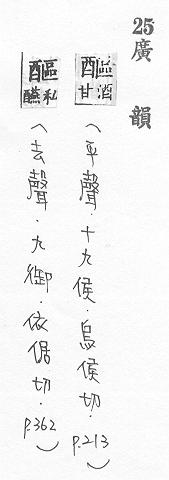 25廣韻
醧 酣酒 (平聲．十九侯．烏侯切．P.213)
醧 私醼 (去聲．九御．依倨切．P.362)